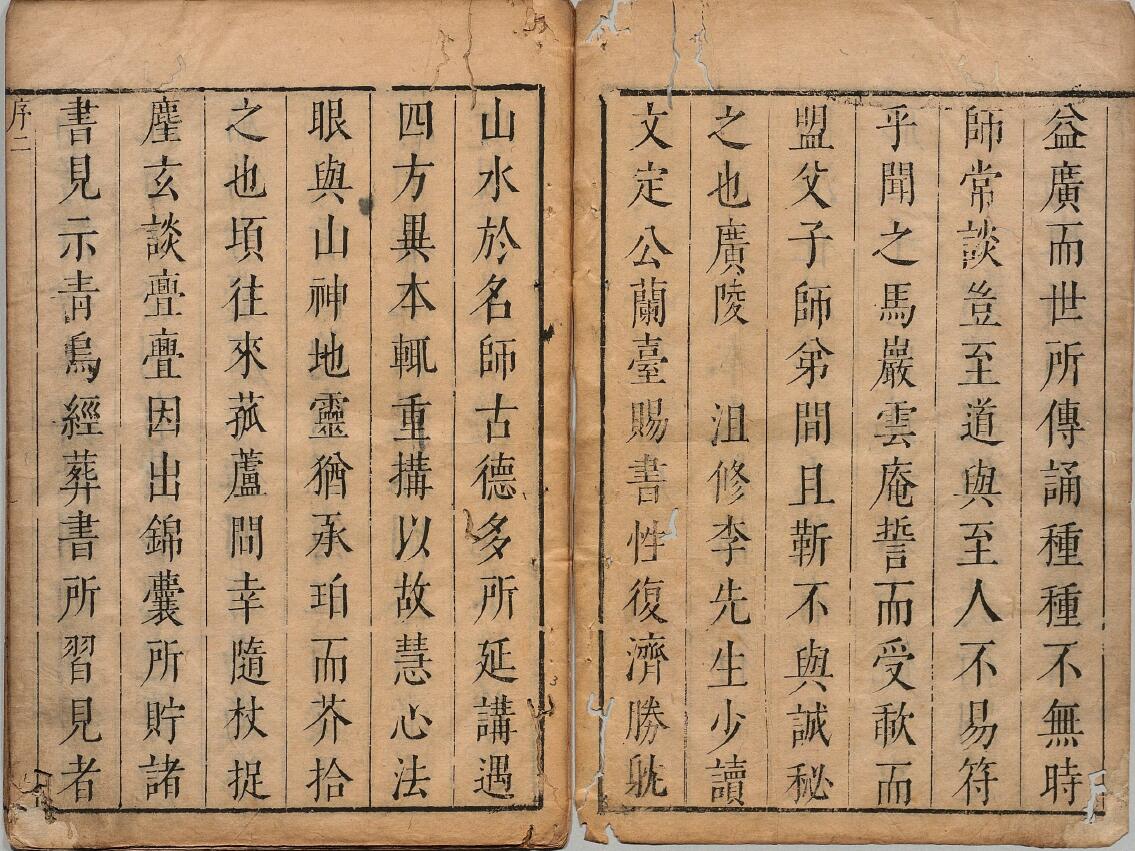 益廣而世所傳誦種種不無時
師常談豈至道與至人不易符
乎聞之馬巖雲庵誓而受歃而
盟父子師弟間且靳不與誠秘
之也廣陵 沮修李先生少讀
文定公蘭臺賜書性復濟勝躭
山水於名師古德多所延講遇
四方異本輒重搆以故慧心法
眼與山神地靈猶承珀而芥拾
之也頃往來菰蘆間幸隨杖捉
麈玄談亹亹因出錦囊所貯諸
書見示青烏經葬書所習見者
序二